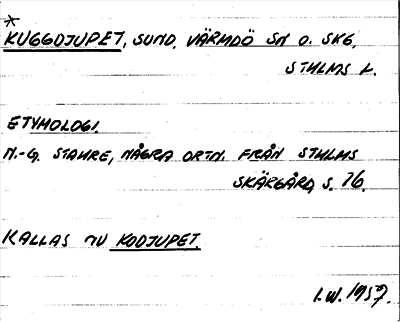 *
KUGGDJUPET, SUND, VÄRMDÖ SN O. SKG,
STHLMS L.
ETYMOLOGI.
N.-G. STAHRE, NÅGRA ORTN. FRÅN STHLMS
SKÄRGÅRD, S. 76.
KALLAS NU KODJUPET.
I.W. 1957.